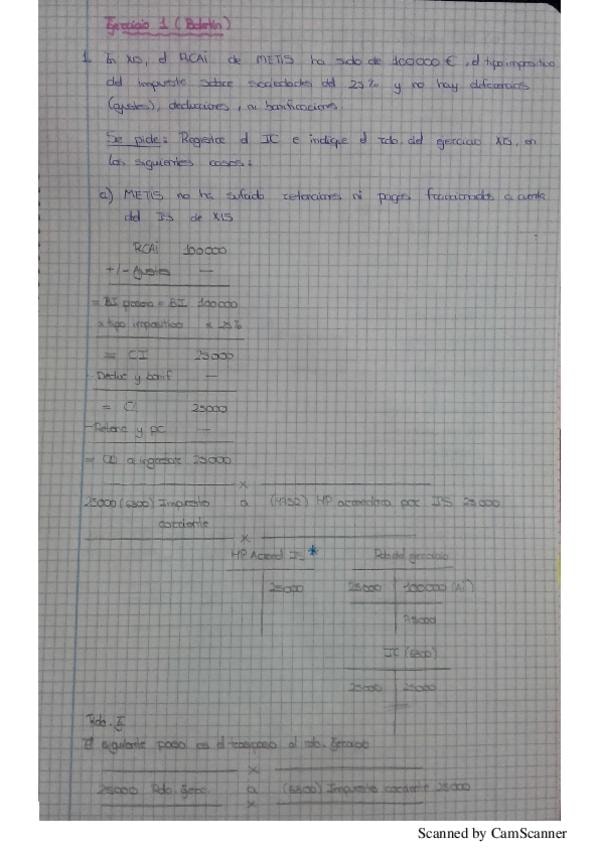 Ejercicio 1 (Boletín)
1. En X15, el RCAI de METIS ha sido de 100000 €, el tipo impositivo
del impuesto sobre sociedades del 25% y no hay diferencias
(ajustes), deducciones, ni bonificaciones.
Se pide: Registre el IC e indique el rdo. del ejercicio X15, en
los siguientes casos:
a) METIS no ha sufrido retenciones ni pagos fraccionados a cuenta
del IS de X15
RCAI 100000
+/- Ajustes —
= BI previa = BI 100000
x tipo impositivo x 25%
= CI 25000
- Deduc y bonif —
= CL 25000
- Retenc y pc —
= CD a ingresar 25000
x
25000 (6300) Impuesto corriente a (4752) HP acreedora por IS 25000
x
HP Acreed IS * Rdo del ejercicio
25000 25000 100000 (AI)
75000
IC (6300)
25000 25000
Rdo. E
El siguiente paso es el traspaso al rdo. Ejercicio
x
25000 Rdo. Ejerc. a (6300) Impuesto corriente 25000
x
Scanned by CamScanner